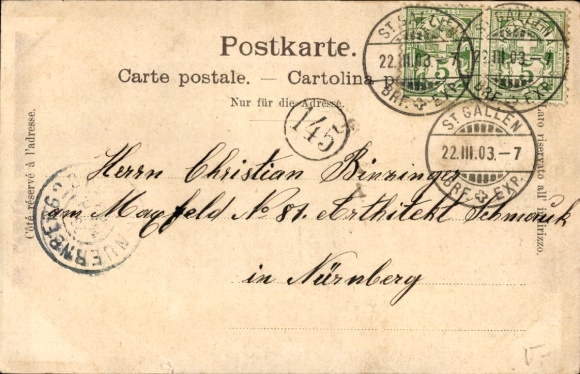 Postkarte.
Carte postale. — Cartolina
Nur für die Adresse.
ST. GALLEN
22.III.03.-7
BRF. EXP.
ST. GALLEN
22.III.03.-7
BRF. EXP.
5
5
145
ST GALLEN
22.III.03.-7
BRF. EXP.
Côté réservé à l'adresse.
NUERNBERG
Herrn Christian Binzinger
am Maxfeld No 81. Arthitekt Schmauk
in Nürnberg